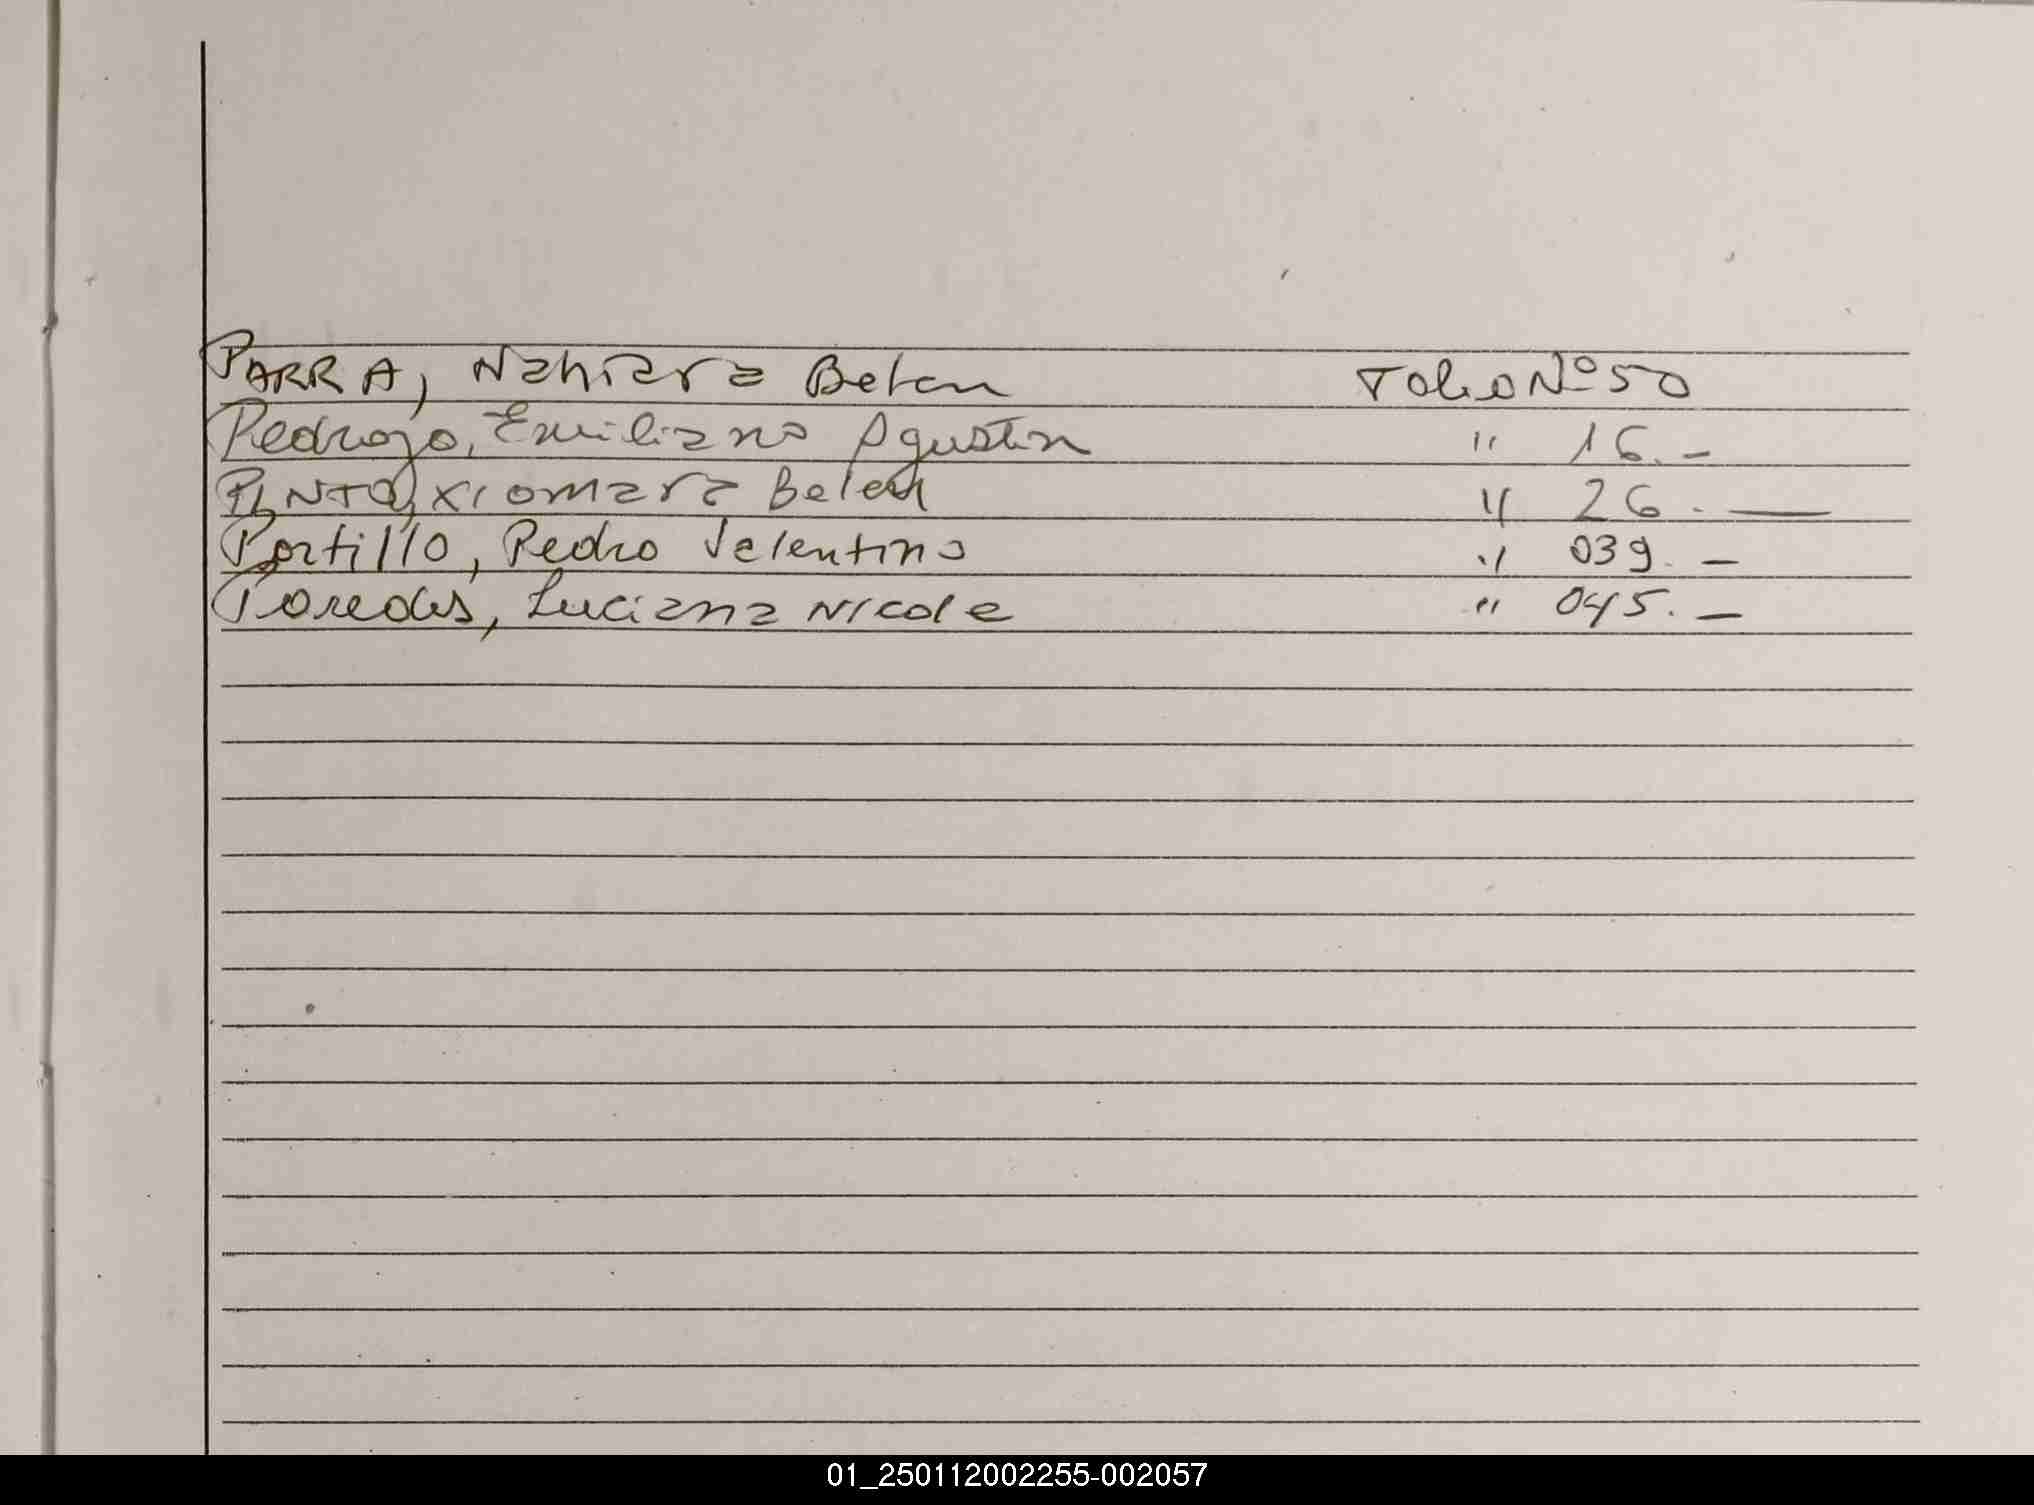 PARRA, Nahiara Belen Folio Nº 50
Pedrozo, Emiliano Agustin " 16.-
PINTO, Xiomara Belen " 26.—
Portillo, Pedro Valentino " 039.-
Paredes, Luciana Nicole " 045.-
01_250112002255-002057